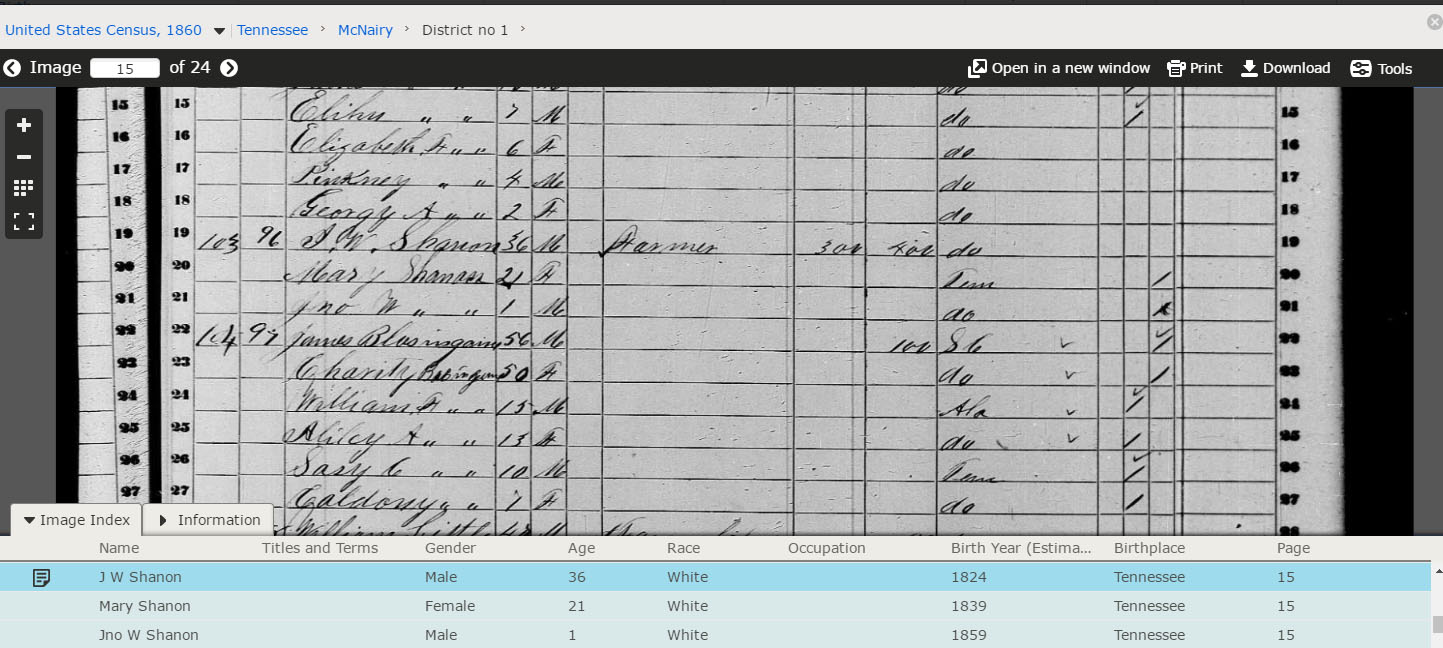 United States Census, 1860 Tennessee › McNairy › District no 1 ›
Image 15 of 24 Open in a new window Print Download Tools
15 15 Elihu " " 7 M do / 15
16 16 Elizabeth F " " 6 F do 16
17 17 Pinkney " " 4 M do 17
18 18 Georgy A " " 2 F do 18
19 19 103 96 J. W. Shanon 36 M Farmer 300 400 do 19
20 20 Mary Shanon 21 F Tenn / 20
21 21 Jno W " " 1 M do 21
22 22 104 97 James Blasingame 56 M 100 S C / 22
23 23 Charity 50 F do / 23
24 24 William F " " 15 M Ala / 24
25 25 A " " 13 F do / 25
26 26 C " " 10 M Tenn / 26
27 27 " " 7 F do / 27
William
Image Index Information
Name Titles and Terms Gender Age Race Occupation Birth Year (Estima... Birthplace Page
J W Shanon Male 36 White 1824 Tennessee 15
Mary Shanon Female 21 White 1839 Tennessee 15
Jno W Shanon Male 1 White 1859 Tennessee 15